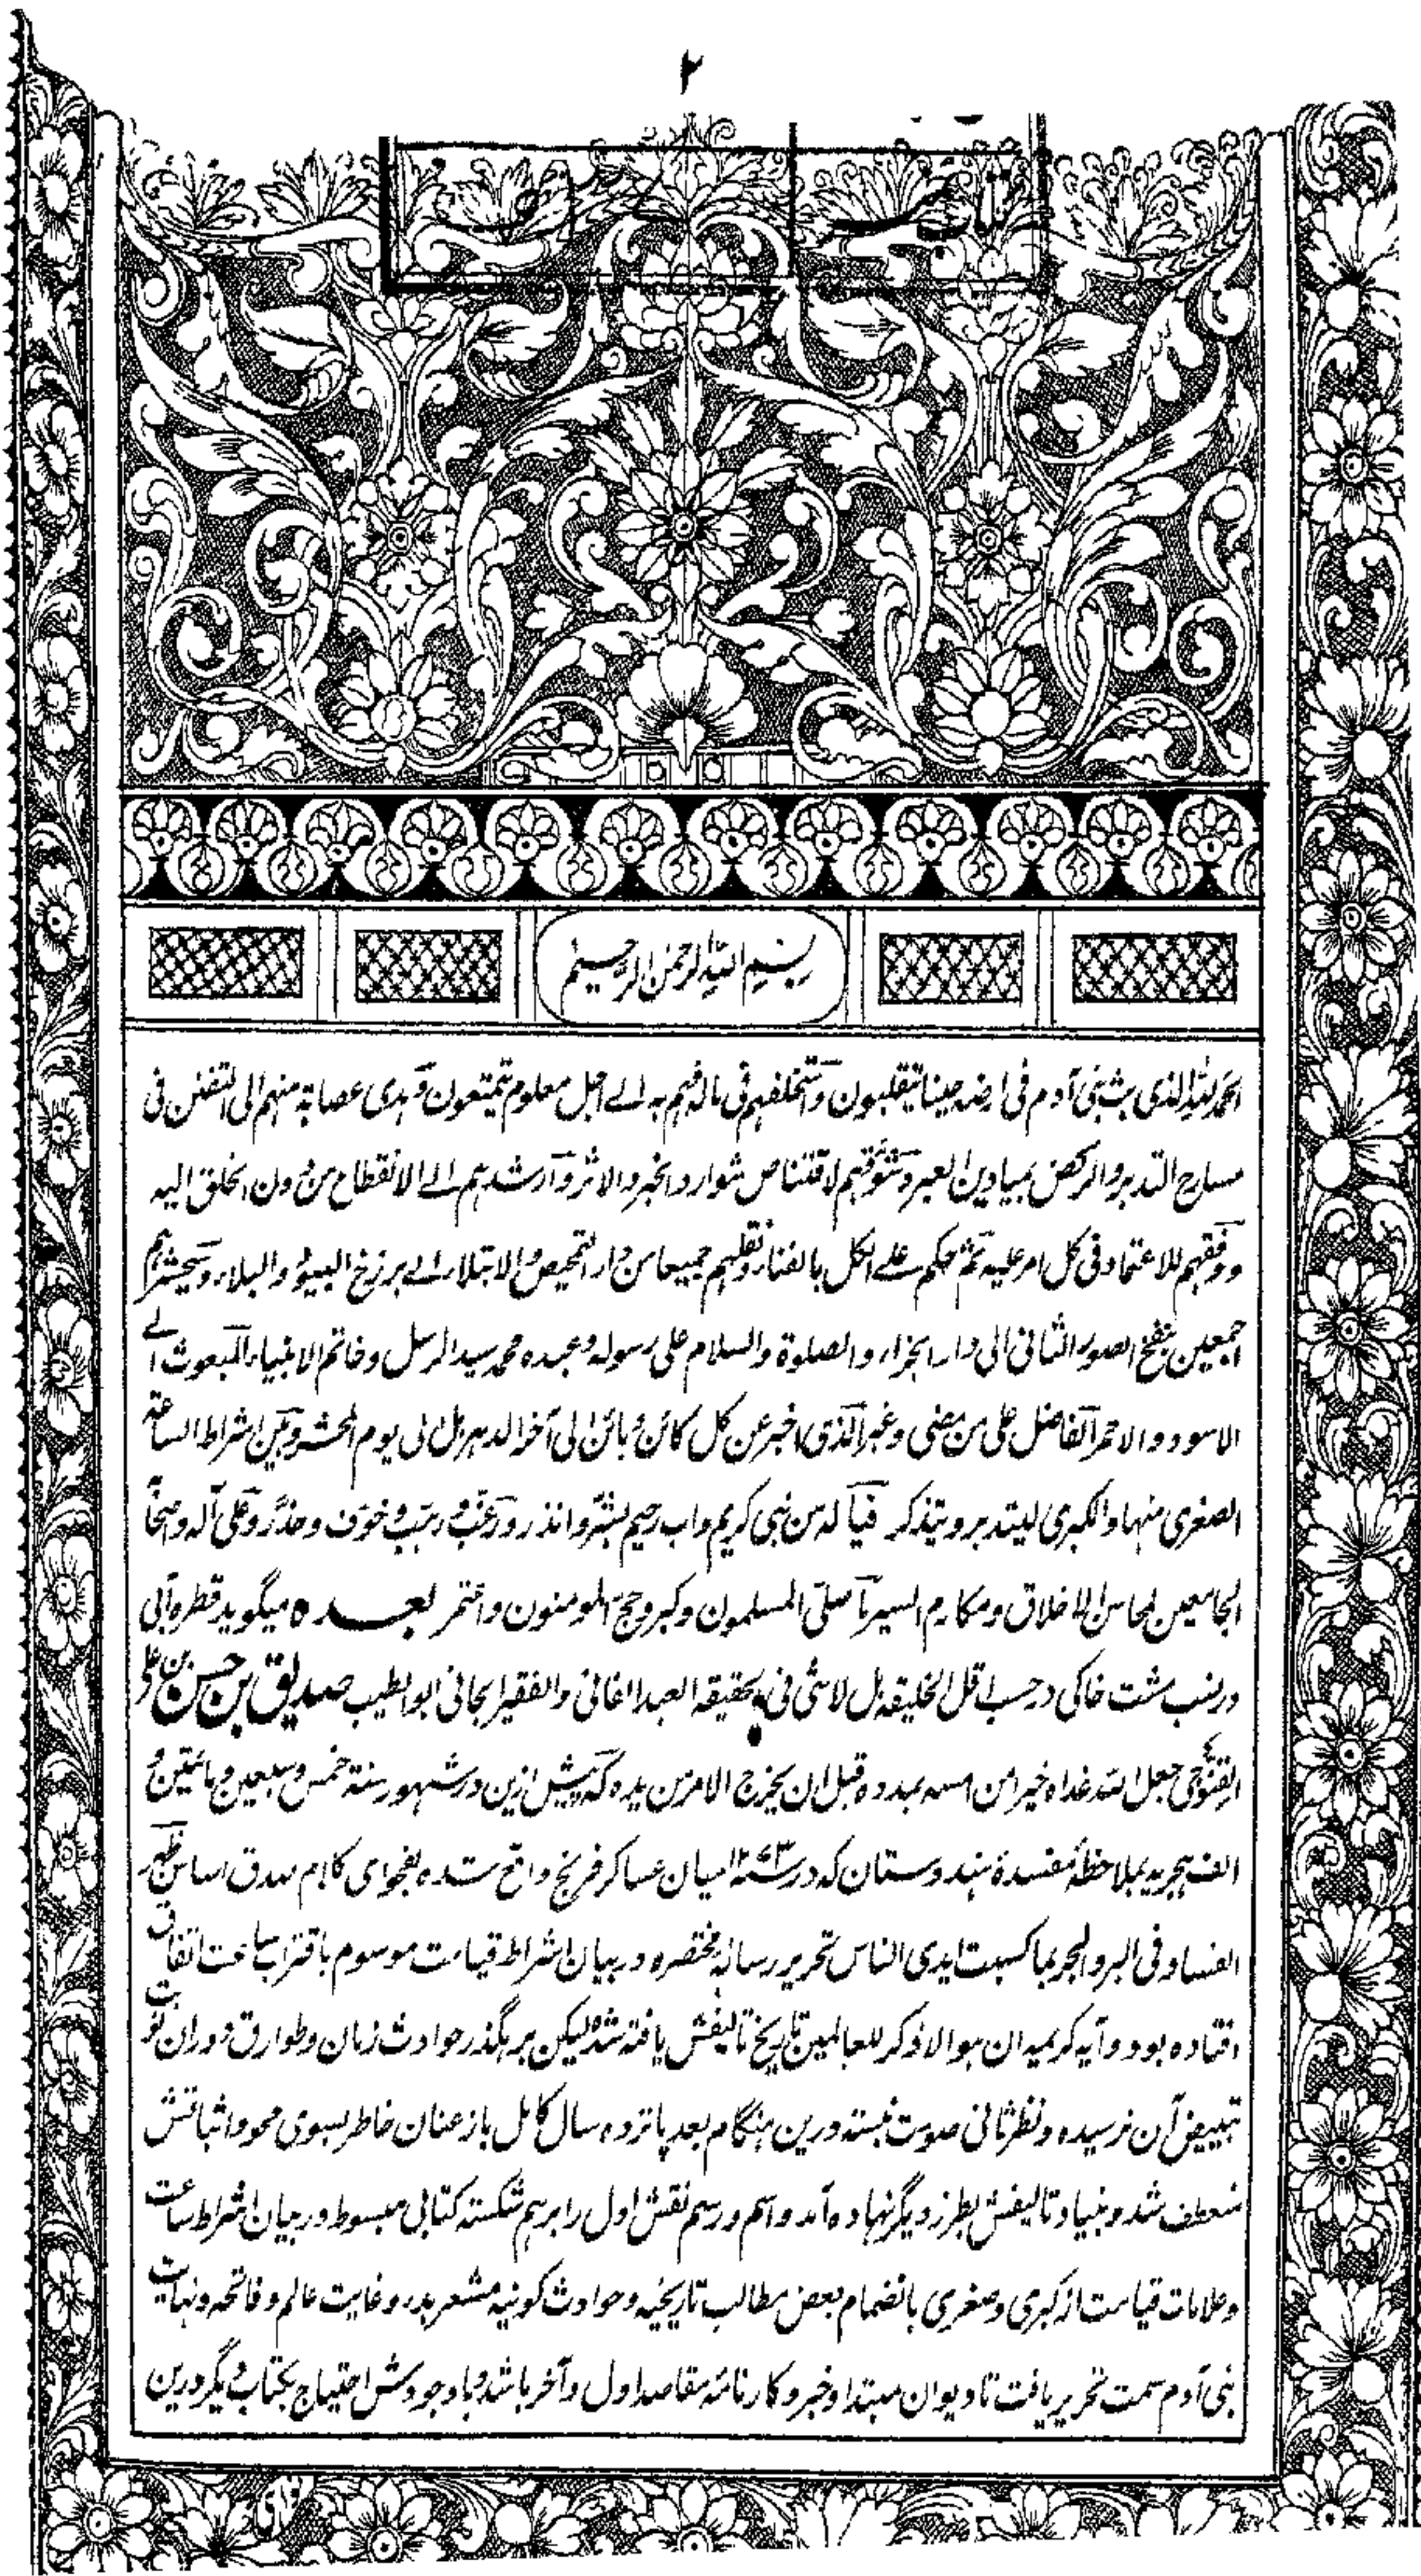 ٢
بسم الله الرحمن الرحيم
الحمد لله الذی بث بنی آدم فی ارضه حینا یتقلبون و استخلفهم فی مالهم به الے اجل معلوم یتمتعون و هدی عصابة منهم الی التفنن فی
مسارح التدبر والرکض بمیادین العبر و شوقهم لاقتناص شوارد الخبر والاثر و ارشدهم الے الانقطاع من دون الخلق الیه
و وفقهم للاعتماد فی کل امر علیه ثم حکم علے الکل بالفناء و نقلهم جمیعا من دار التمحیص والابتلاء الے برزخ البیوء والبلاء و یحشرهم
اجمعین بنفخ الصور الثانی الی دار الجزاء والصلوة والسلام علی رسوله وعبده محمد سید الرسل وخاتم الانبیاء المبعوث الے
الاسود والاحمر الفاضل علی من مضی وغبر الذی اخبر عن کل کائن و بائن الی آخر الدهر بل الی یوم المحشر و بین اشراط الساعة
الصغری منها والکبری لیتدبر ویتذکر فیا له من نبی کریم واب رحیم بشر وانذر ورغب ورهب وخوف وحذر وعلی آله وصحابه
الجامعین لمحاسن الاخلاق ومکارم السیر ما صلی المسلمون وکبر وحج المومنون واعتمر بعده میگوید قطره آبی
در نسب مشت خاکی در حسب اقل الخلیقه بل لا شئ فی الحقیقه العبد الفانی والفقیر الجانی ابو الطیب صدیق بن حسن بن علی
القنوجی جعل الله غداه خیرا من امسه بمدده قبل ان یخرج الامر من یده که پیش ازین در شهور سنة خمس وسبعین ومائتین و
الف هجریه بملاحظهٔ مفسدهٔ هندوستان که در ١٢٧٣ه میان عساکر فرنج واقع شده بفحوای کلام صدق اساس ظهر
الفساد فی البر والبحر بما کسبت ایدی الناس تحریر رسالهٔ مختصره در بیان اشراط قیامت موسوم باقتراب ساعت اتفاق
افتاده بود وآیه کریمه ان هو الا ذکر للعالمین تاریخ تالیفش یافته شده لیکن برهگذر حوادث زمان وطوارق دوران نوبت
تبییض آن نرسیده ونظر ثانی صورت نبسته درین هنگام بعد پانزده سال کامل باز عنان خاطر بسوی محو واثباتش
منعطف شد و بنیاد تالیفش بطرز دیگر نهاده آمد واسم ورسم نقش اول را برهم شکسته کتابی مبسوط در بیان اشراط ساعت
وعلامات قیامت از کبری وصغری بانضمام بعض مطالب تاریخیه وحوادث کونیه مشعر بدر وغایت عالم وفاتحه ونهایت
بنی آدم سمت تحریر یافت تا دیوان مبتدا وخبر وکارنامهٔ مقاصد اول وآخر باشد وباوجودش احتیاج بکتاب دیگر درین